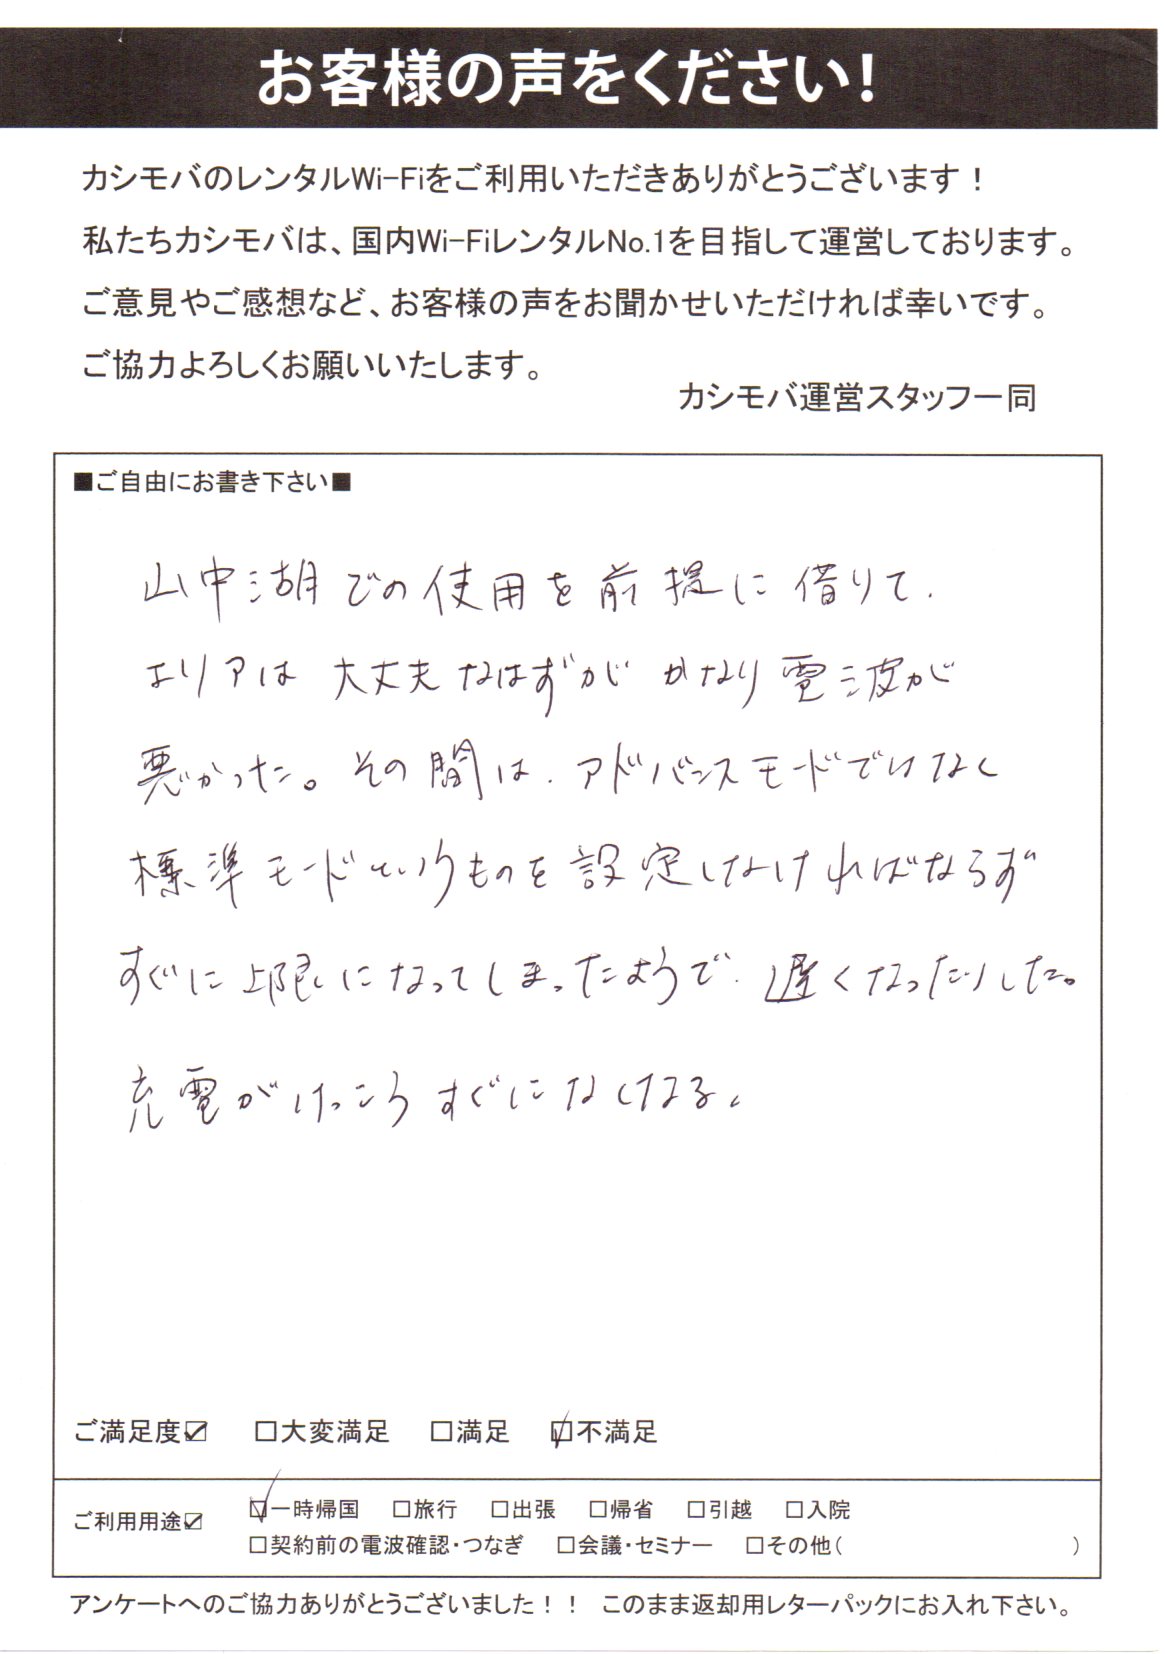 お客様の声をください！
カシモバのレンタルWi-Fiをご利用いただきありがとうございます！
私たちカシモバは、国内Wi-FiレンタルNo.1を目指して運営しております。
ご意見やご感想など、お客様の声をお聞かせいただければ幸いです。
ご協力よろしくお願いいたします。
カシモバ運営スタッフ一同
■ご自由にお書き下さい■
山中湖での使用を前提に借りて、
エリアは大丈夫なはずがかなり電波が
悪かった。その間は、アドバンスモードではなく
標準モードというものを設定しなければならず
すぐに上限になってしまったようで、遅くなったりした。
充電がけっこうすぐになくなる。
ご満足度☑ □大変満足 □満足 ☑不満足
ご利用用途☑ ☑一時帰国 □旅行 □出張 □帰省 □引越 □入院
□契約前の電波確認・つなぎ □会議・セミナー □その他( )
アンケートへのご協力ありがとうございました！！ このまま返却用レターパックにお入れ下さい。